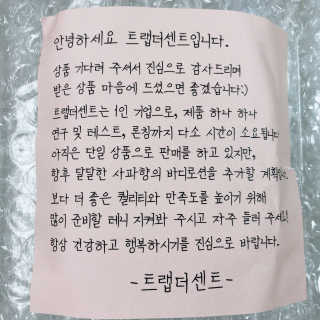 안녕하세요 트랩더센트입니다.
상품 기다려 주셔서 진심으로 감사드리며
받은 상품 마음에 드셨으면 좋겠습니다:)
트랩더센트는 1인 기업으로, 제품 하나 하나
연구 및 테스트, 론칭까지 다소 시간이 소요됩니다
아직은 단일 상품으로 판매를 하고 있지만,
향후 달달한 사과향의 바디로션을 추가할 계획
보다 더 좋은 퀄리티와 만족도를 높이기 위해
많이 준비할 테니 지켜봐 주시고 자주 들러 주세요!
항상 건강하고 행복하시기를 진심으로 바랍니다.
-트랩더센트-